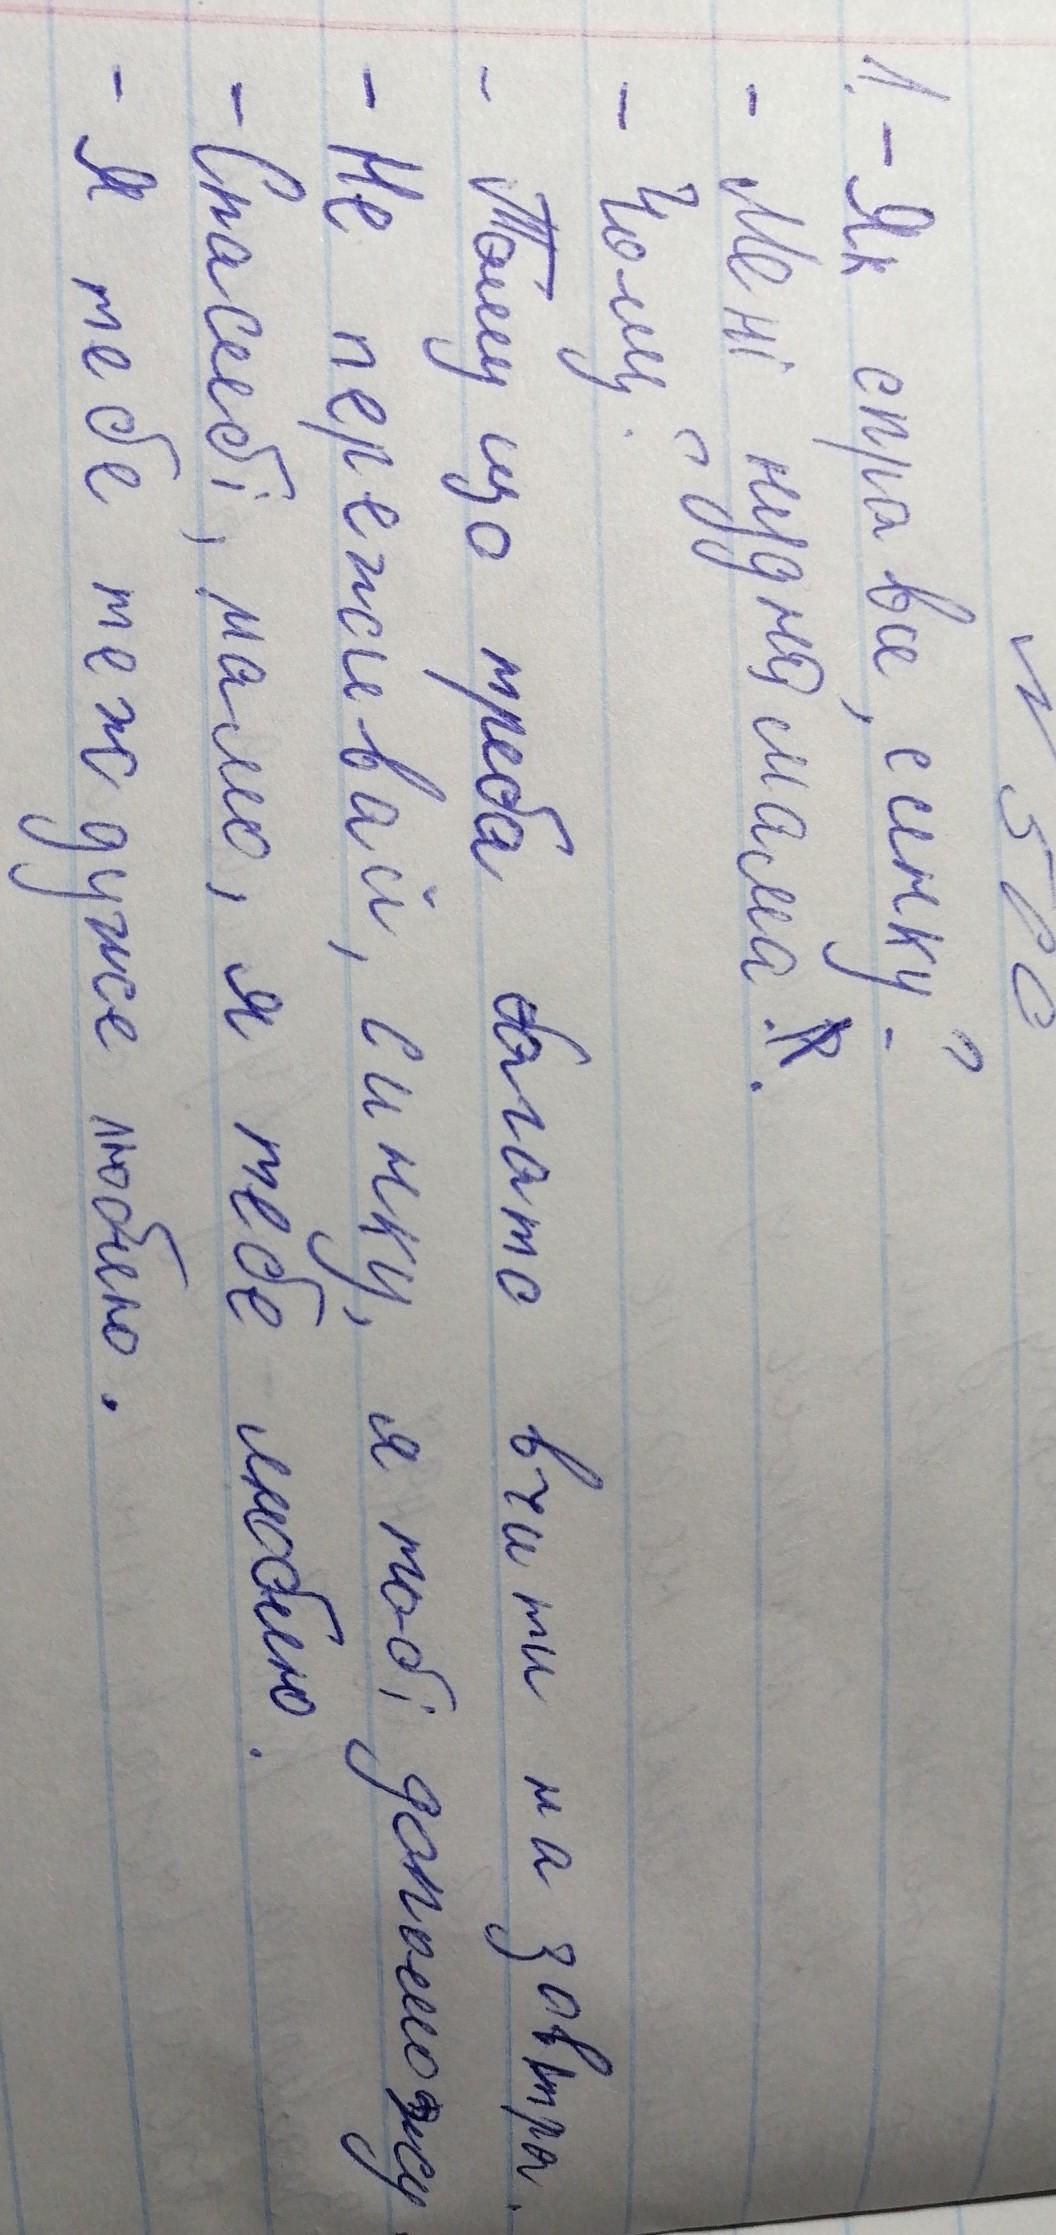 1. - Як справи, синку?
- Мені нудня мама.
- Чому?
- Тому що треба багато вчити на завтра.
- Не переживай, синку, я тобі допоможу.
- Спасибі, мамо, я тебе люблю.
- Я тебе теж дуже люблю.